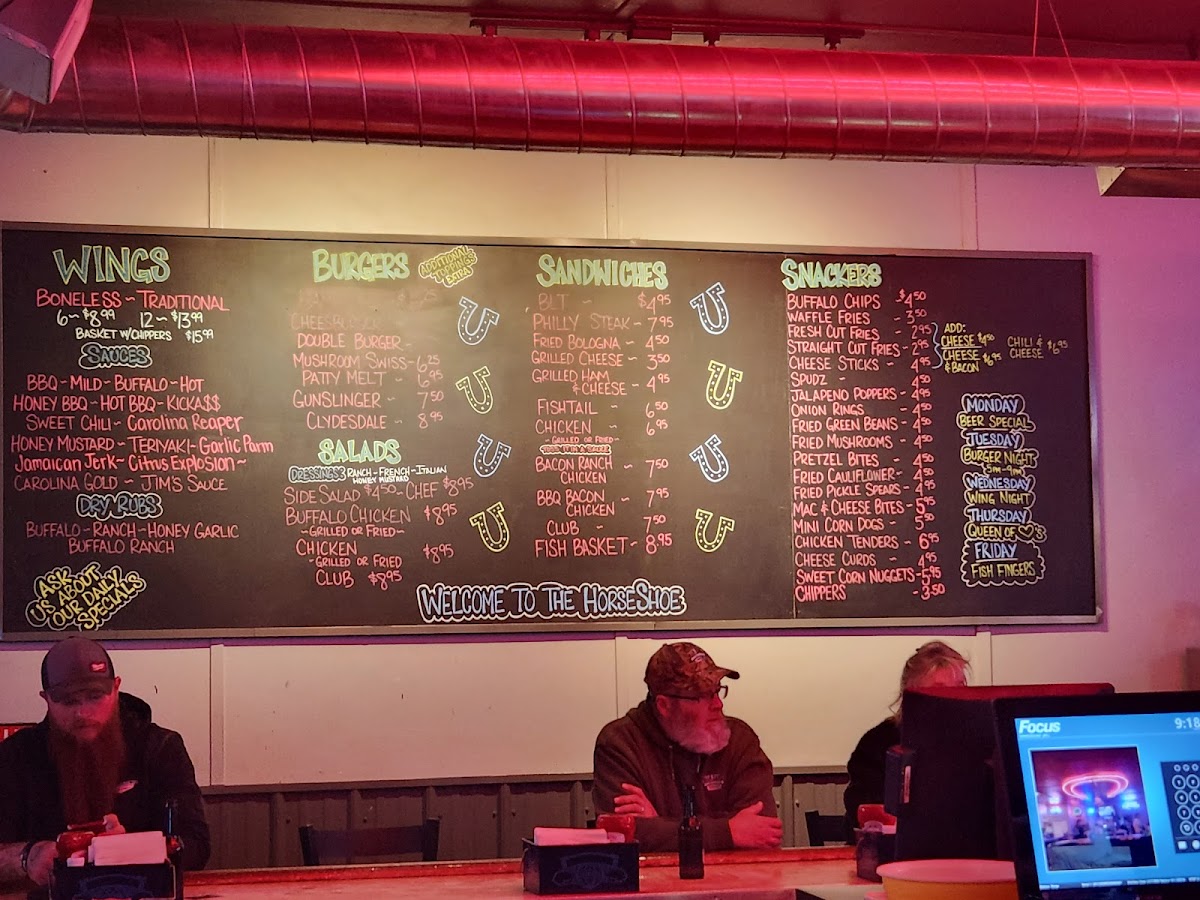 WINGS
BONELESS ~ TRADITIONAL
6~ $8.99 12 ~ $13.99
BASKET W/CHIPPERS $15.99
SAUCES
BBQ ~ MILD ~ BUFFALO ~ HOT
HONEY BBQ ~ HOT BBQ ~ KICKA$$
SWEET CHILI ~ Carolina Reaper
HONEY MUSTARD ~ TERIYAKI ~ Garlic Parm
Jamaican Jerk ~ Citrus Explosion ~
CAROLINA GOLD ~ JIM'S SAUCE
DRY RUBS
BUFFALO - RANCH - HONEY GARLIC
BUFFALO RANCH
ASK
US ABOUT
OUR DAILY
SPECIALS
BURGERS
ADDITIONAL
TOPPINGS
EXTRA
DOUBLE BURGER -
MUSHROOM SWISS - 6.25
PATTY MELT - 6.95
GUNSLINGER - 7.50
CLYDESDALE - 8.95
SALADS
DRESSINGS RANCH - FRENCH - ITALIAN
HONEY MUSTARD
SIDE SALAD $4.50 - CHEF $8.95
BUFFALO CHICKEN $8.95
~ GRILLED OR FRIED ~
CHICKEN $8.95
- GRILLED OR FRIED
CLUB $8.95
SANDWICHES
BLT ~ $4.95
PHILLY STEAK - 7.95
FRIED BOLOGNA - 4.50
GRILLED CHEESE - 3.50
GRILLED HAM
& CHEESE - 4.95
FISHTAIL - 6.50
CHICKEN - 6.95
- GRILLED OR FRIED -
TOSS IT IN A SAUCE
BACON RANCH
CHICKEN ~ 7.50
BBQ BACON
CHICKEN ~ 7.95
CLUB - 7.50
FISH BASKET - 8.95
WELCOME TO THE HORSESHOE
SNACKERS
BUFFALO CHIPS - $4.50
WAFFLE FRIES - 3.50
FRESH CUT FRIES - 2.95
STRAIGHT CUT FRIES - 2.95
CHEESE STICKS - 4.95
SPUDZ - 4.50
JALAPENO POPPERS - 4.95
ONION RINGS - 4.50
FRIED GREEN BEANS - 4.50
FRIED MUSHROOMS - 4.50
PRETZEL BITES - 4.50
FRIED CAULIFLOWER - 4.50
FRIED PICKLE SPEARS - 4.95
MAC & CHEESE BITES - 5.95
MINI CORN DOGS - 5.50
CHICKEN TENDERS - 6.95
CHEESE CURDS - 4.95
SWEET CORN NUGGETS - 5.95
CHIPPERS - 3.50
ADD:
CHEESE $4.50
CHEESE $6.95
& BACON
CHILI & $6.95
CHEESE
MONDAY
BEER SPECIAL
TUESDAY
BURGER NIGHT
5PM - 9PM
WEDNESDAY
WING NIGHT
THURSDAY
QUEEN OF ♡'S
FRIDAY
FISH FINGERS
Focus
9:18